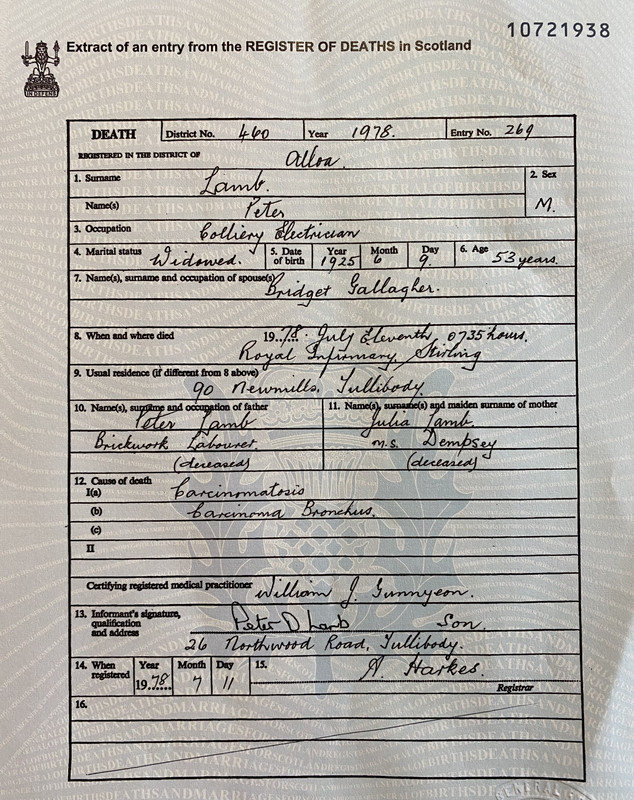 10721938
Extract of an entry from the REGISTER OF DEATHS in Scotland
IN DEFENS
DEATH District No. 460 Year 1978. Entry No. 269
REGISTERED IN THE DISTRICT OF Alloa.
1. Surname Lamb. 2. Sex
Name(s) Peter M.
3. Occupation Colliery Electrician
4. Marital status Widowed. 5. Date of birth Year 1925 Month 6 Day 9. 6. Age 53 years.
7. Name(s), surname and occupation of spouse(s) Bridget Gallagher.
8. When and where died 1978. July Eleventh, 0735 hours.
Royal Infirmary, Stirling
9. Usual residence (if different from 8 above)
90 Newmills, Tullibody.
10. Name(s), surname and occupation of father
Peter Lamb
Brickwork Labourer.
(deceased)
11. Name(s), surname(s) and maiden surname of mother
Julia Lamb
m.s. Dempsey
(deceased)
12. Cause of death
I(a) Carcinomatosis
(b) Carcinoma Bronchus.
(c)
II
Certifying registered medical practitioner William J. Gunnyeon.
13. Informant's signature, qualification and address Peter D Lamb Son.
26 Northwood Road, Tullibody.
14. When registered Year 1978 Month 7 Day 11 15. A. Harkes.
Registrar
16.